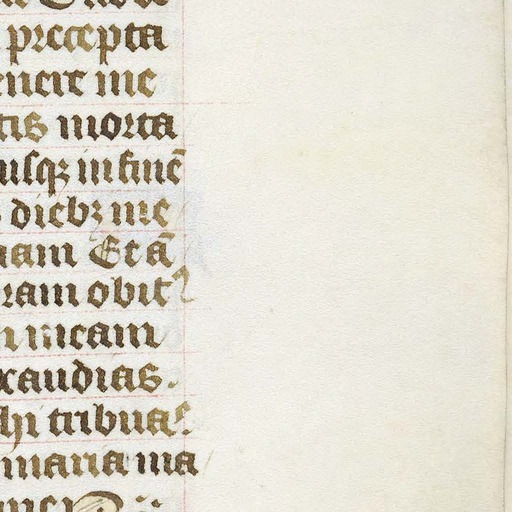 precepta
enere me
tis morta
uisqꝫ in finē
diebꝫ me
am Et ā
ram obit
n meam
xaudias.
hi tribuas
maria ma